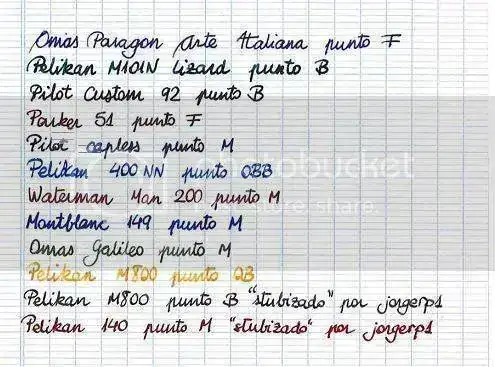 Omas Paragon Arte Italiana punto F
Pelikan M101N Lizard punto B
Pilot Custom 92 punto B
Parker 51 punto F
Pilot capless punto M
Pelikan 400 NN punto OBB
Waterman Man 200 punto M
Montblanc 149 punto M
Omas Galileo punto M
Pelikan M800 punto OB
Pelikan M800 punto B "stubizado" por jorgerp1
Pelikan 140 punto M "stubizado" por jorgerp1